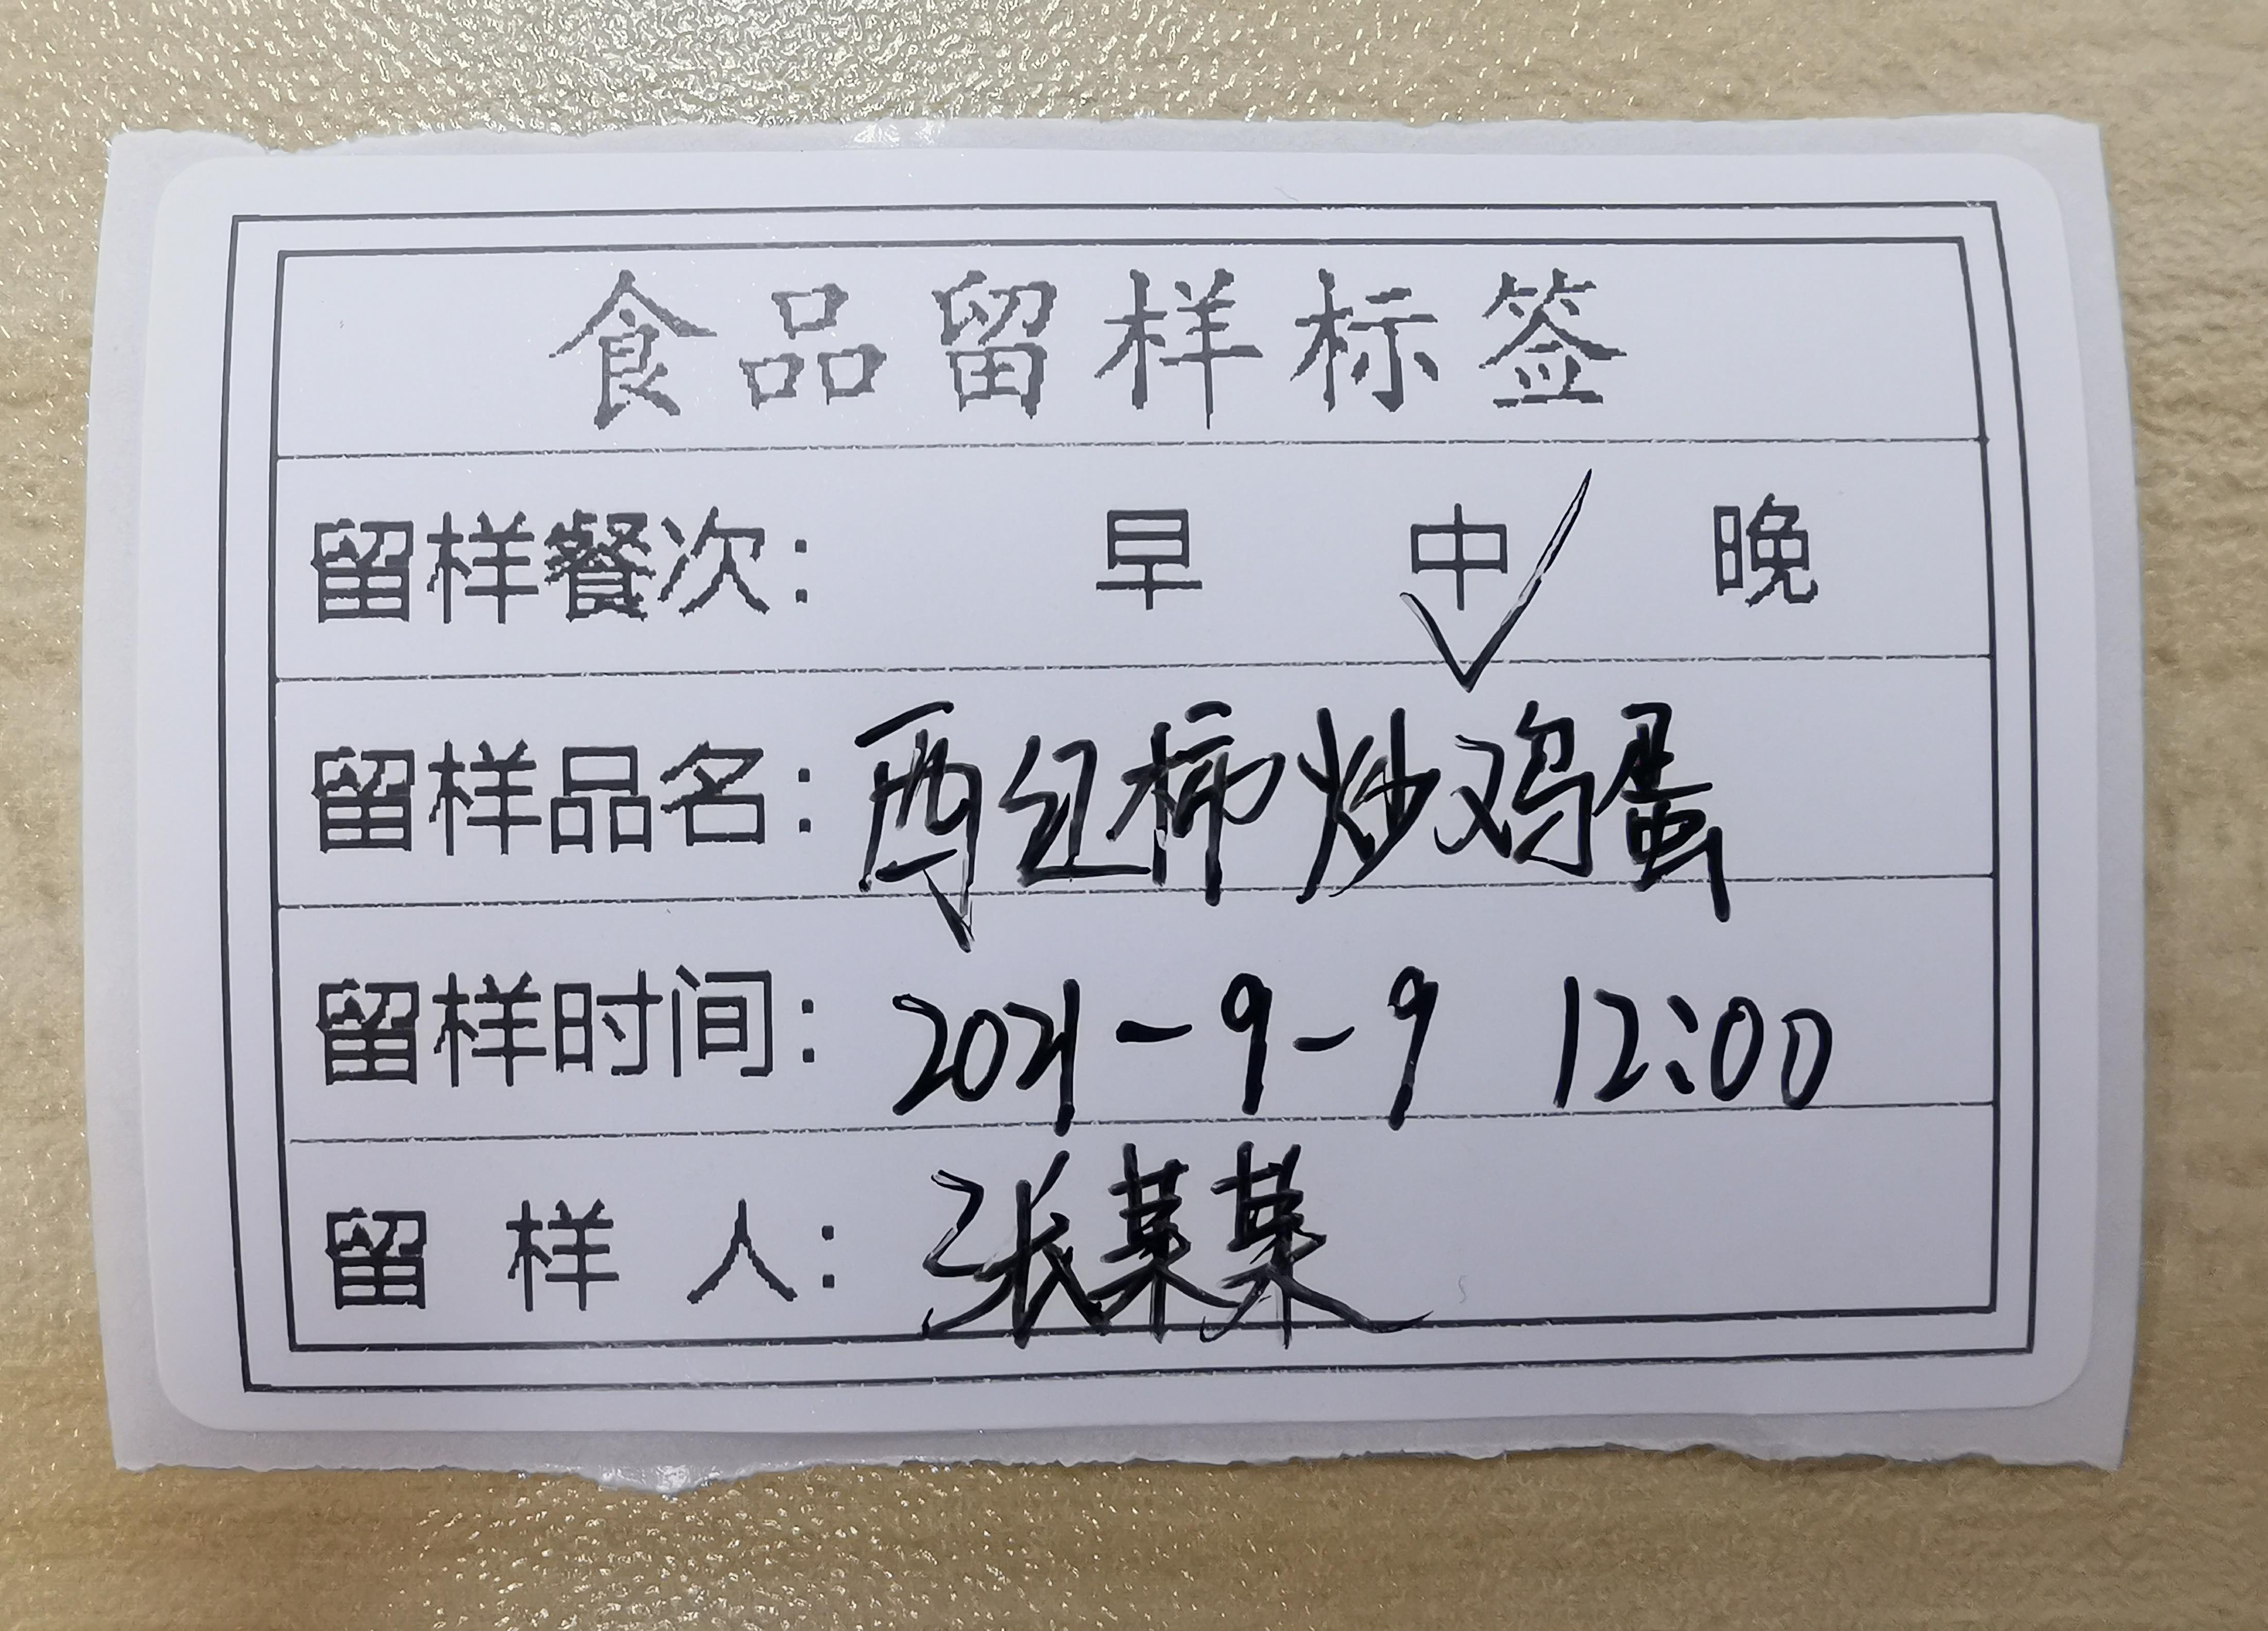 食品留样标签
留样餐次： 早 中✓ 晚
留样品名：西红柿炒鸡蛋
留样时间：2021-9-9 12:00
留 样 人：张某某